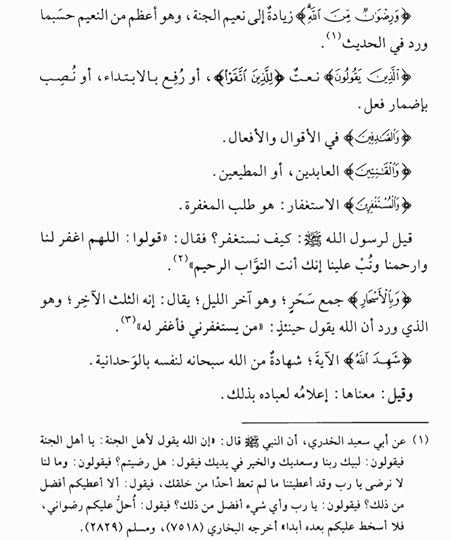 ﴿وَرِضْوَٰنٌ مِّنَ ٱللَّهِ﴾ زيادةٌ إلى نعيم الجنة، وهو أعظم من النعيم حَسبما
ورد في الحديث(١).
﴿ٱلَّذِينَ يَقُولُونَ﴾ نعتٌ ﴿لِلَّذِينَ ٱتَّقَوْا۟﴾، أو رُفِع بالابتداء، أو نُصِب
بإضمار فعل.
﴿وَٱلصَّـٰدِقِينَ﴾ في الأقوال والأفعال.
﴿وَٱلْقَـٰنِتِينَ﴾ العابدين، أو المطيعين.
﴿وَٱلْمُسْتَغْفِرِينَ﴾ الاستغفار: هو طلب المغفرة.
قيل لرسول الله ﷺ: كيف نستغفر؟ فقال: «قولوا: اللهم اغفر لنا
وارحمنا وتُبْ علينا إنك أنت التوَّاب الرحيم»(٢).
﴿بِٱلْأَسْحَارِ﴾ جمع سَحَرٍ؛ وهو آخر الليل؛ يقال: إنه الثلث الآخِر؛ وهو
الذي ورد أن الله يقول حينئذٍ: «من يستغفرني فأغفر له»(٣).
﴿شَهِدَ ٱللَّهُ﴾ الآيةَ؛ شهادةٌ من الله سبحانه لنفسه بالوَحدانية.
وقيل: معناها: إعلامُه لعباده بذلك.
(١) عن أبي سعيد الخدري، أن النبي ﷺ قال: «إن الله يقول لأهل الجنة: يا أهل الجنة
فيقولون: لبيك ربنا وسعديك والخير في يديك فيقول: هل رضيتم؟ فيقولون: وما لنا
لا نرضى يا رب وقد أعطيتنا ما لم تعط أحدًا من خلقك، فيقول: ألا أعطيكم أفضل
من ذلك؟ فيقولون: يا رب وأي شيء أفضل من ذلك؟ فيقول: أُحلُّ عليكم رضواني،
فلا أسخط عليكم بعده أبدا» أخرجه البخاري (٧٥١٨)، ومسلم (٢٨٢٩).